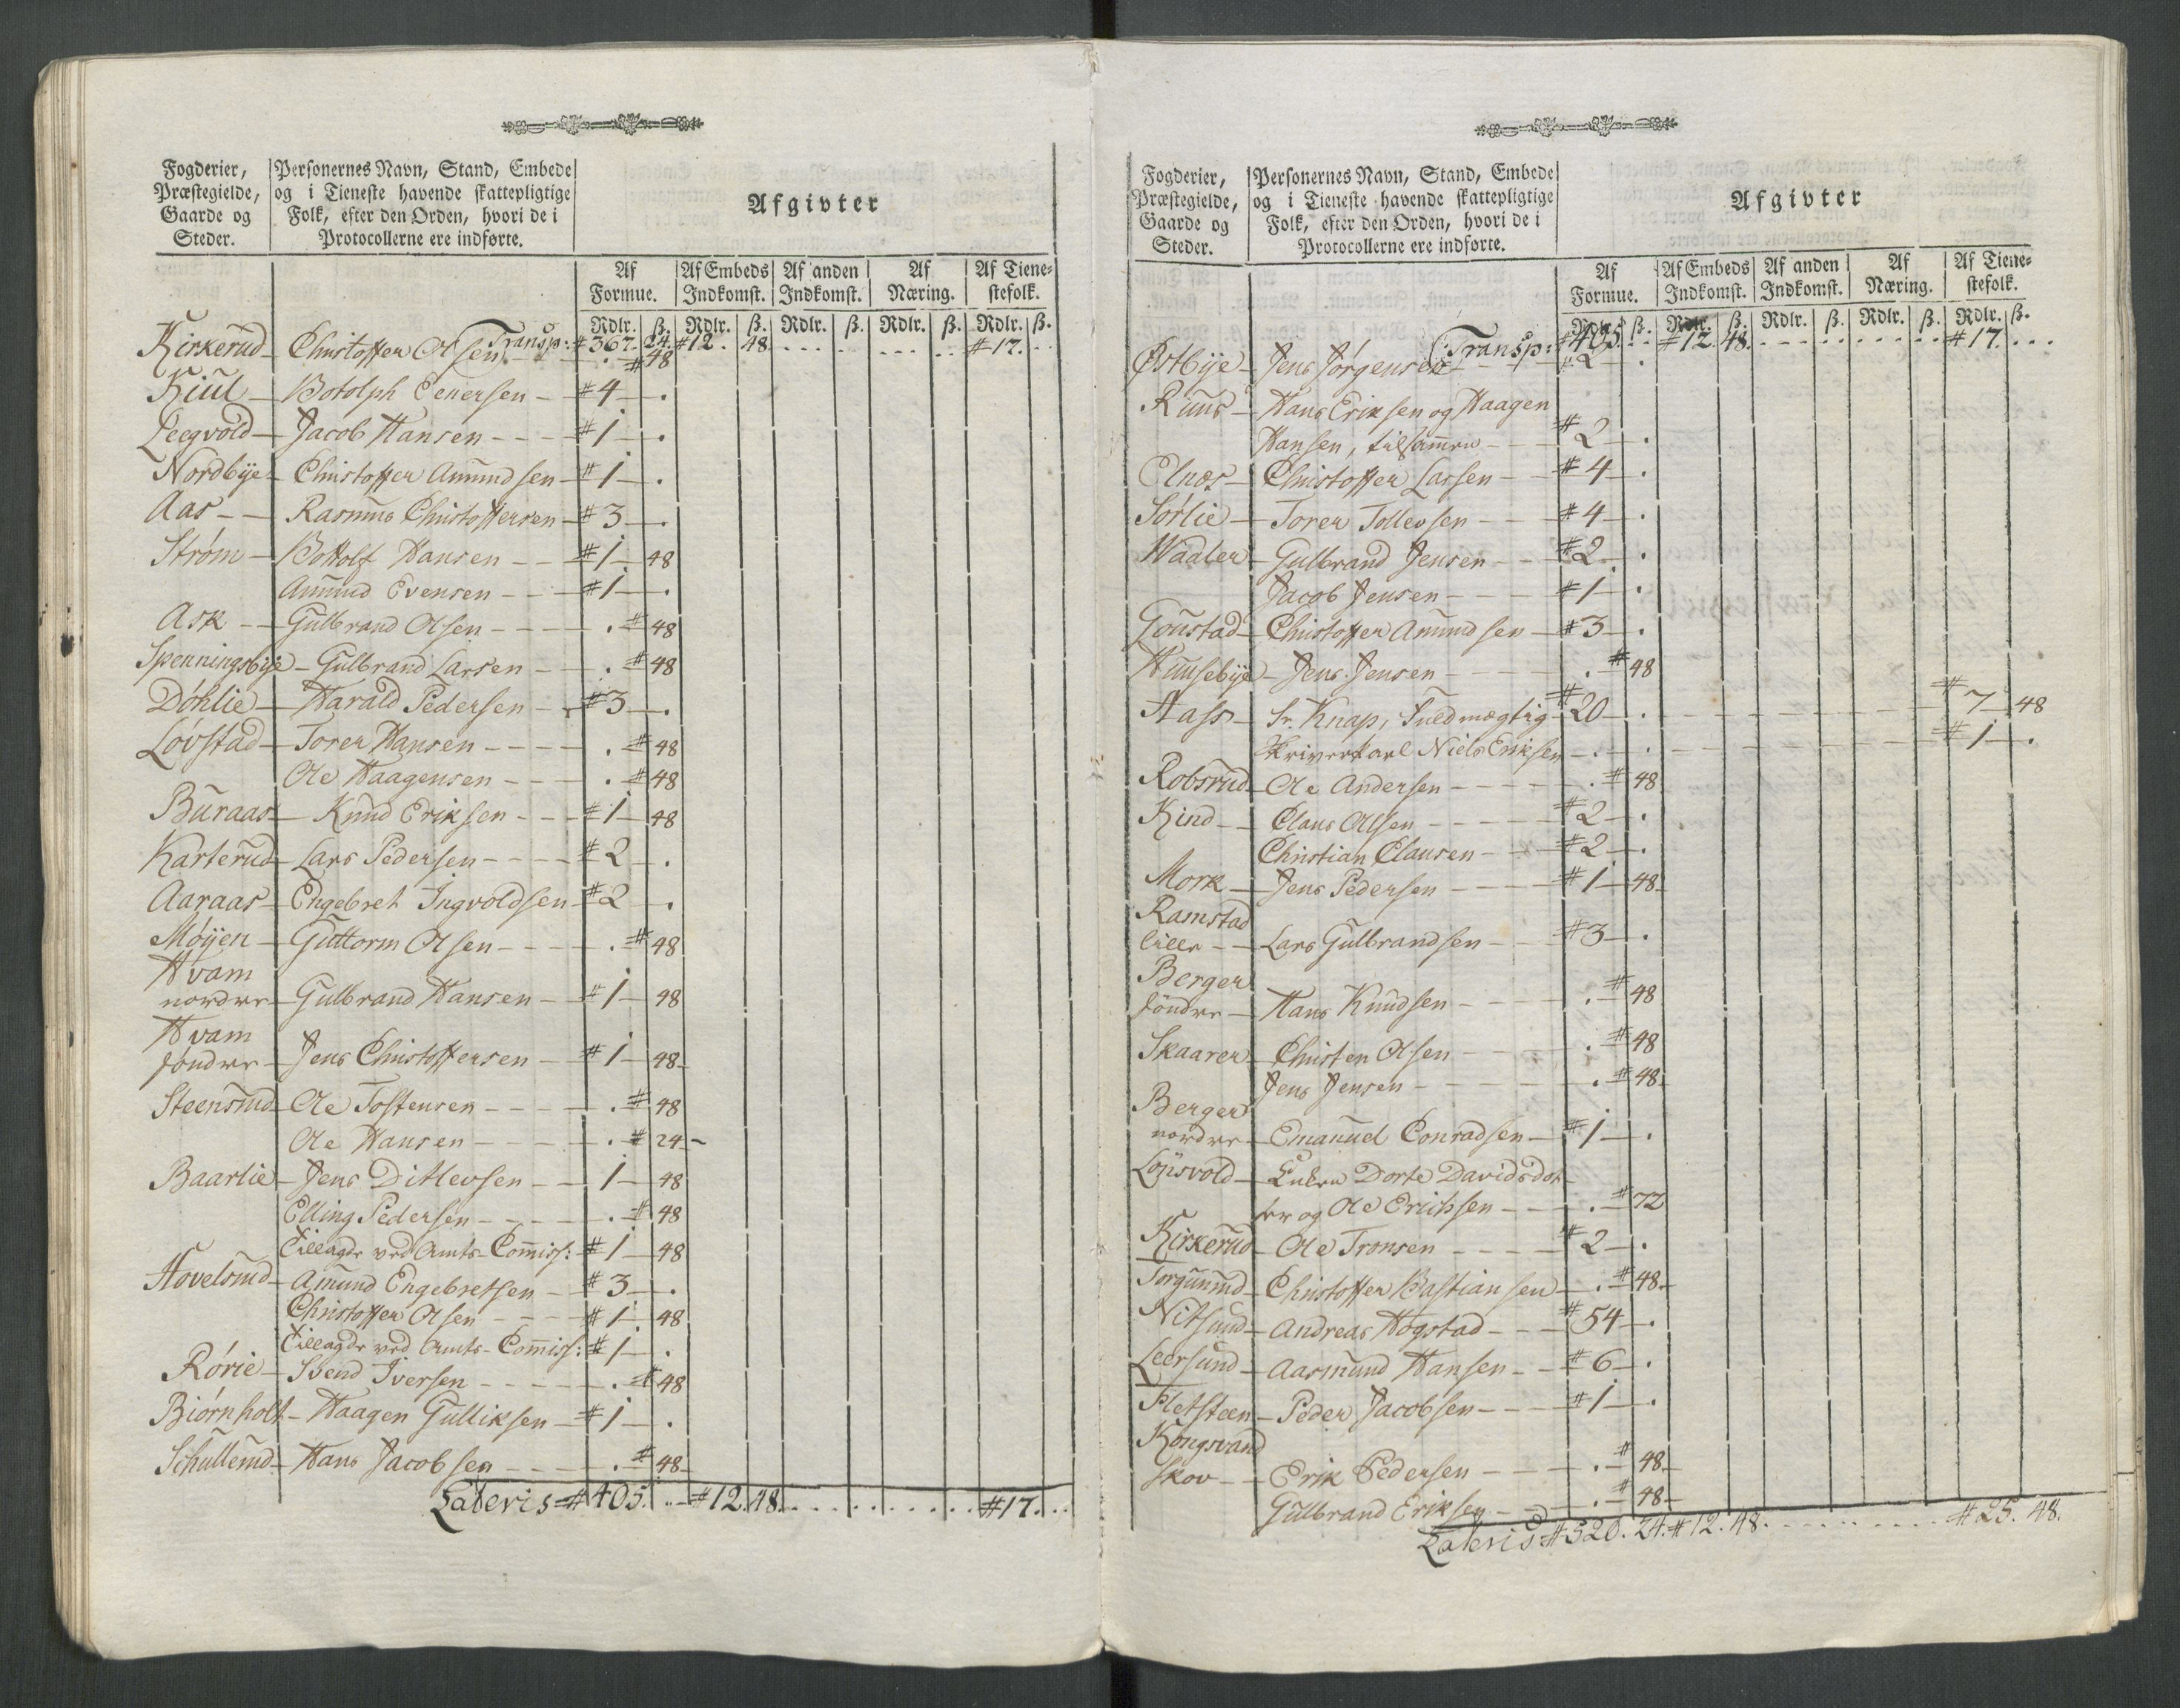 Fogderier,
Præstegielde,
Gaarde og
Steder.
Personernes Navn, Stand, Embede
og i Tieneste havende skattepligtige
Folk, efter den Orden, hvori de i
Protocollerne ere indførte.
Afgivter
Af Formue. Af Embeds Indkomst. Af anden Indkomst. Af Næring. Af Tienestefolk.
Rdlr. ß. Rdlr. ß. Rdlr. ß. Rdlr. ß. Rdlr. ß.
Transp: # 367. 24. # 12. 48. # 17.
Kirkerud Christoffer Olsen . # 48
Kiul Botolph Eenersen # 4 .
Leegvold Jacob Hansen # 1 .
Nordbÿe Christoffer Amundsen # 1 .
Aas Rasmus Christoffersen # 3 .
Strøm Bottolf Hansen # 1 48
Amund Evensen # 1 .
Ask Gulbrand Olsen . # 48
Spenningsbÿe Gulbrand Larsen . # 48
Døhlie Harald Pedersen # 3 .
Løvstad Torer Hansen . # 48
Ole Haagensen . # 48
Buraas Knud Eriksen # 1 48
Karterud Lars Pedersen # 2 .
Aaraas Engebret Ingvoldsen # 2 .
Møÿen Guttorm Olsen . # 48
Hvam
nordre Gulbrand Hansen # 1 48
Hvam
søndre Jens Christoffersen # 1 48
Steensrud Ole Tostensen . # 48
Ole Hansen . # 24
Baarlie Jens Ditlevsen 1 48
Elling Pedersen . # 48
Tillagde ved Amts-Commiss: # 1 48
Hovelsrud Amund Engebretsen # 3 .
Christoffer Olsen # 1 48
Tillagde ved Amts-Commiss: # 1 .
Rørie Svend Iversen . # 48
Biørnholt Haagen Gulliksen # 1 .
Schullerud Hans Jacobsen . # 48
Lateris # 405. # 12. 48. # 17.
Fogderier,
Præstegielde,
Gaarde og
Steder.
Personernes Navn, Stand, Embede
og i Tieneste havende skattepligtige
Folk, efter den Orden, hvori de i
Protocollerne ere indførte.
Afgivter
Af Formue. Af Embeds Indkomst. Af anden Indkomst. Af Næring. Af Tienestefolk.
Rdlr. ß. Rdlr. ß. Rdlr. ß. Rdlr. ß. Rdlr. ß.
Transp: # 405. # 12. 48. # 17.
Østbÿe Jens Jørgensen # 2 .
Ruus Hans Eriksen og Haagen
Hansen, tilsammen # 2 .
Elnæs Christoffer Larsen # 4 .
Sørlie Torer Tollevsen # 4 .
Waaler Gulbrand Jensen # 2 .
Jacob Jensen # 1 .
Goustad Christoffer Amundsen # 3 .
Huusebÿe Jens Jensen . # 48
Aass Sr. Knap, Fuldmægtig # 20 . # 7 48
Skriverkarl Niels Eriksen . . # 1 .
Robsrud Ole Andersen . # 48
Kind Claus Olsen # 2 .
Christian Clausen # 2 .
Mork Jens Pedersen # 1 48
Ramstad
lille Lars Gulbrandsen # 3 .
Berger
søndre Hans Knudsen . # 48
Skaarer Christen Olsen . # 48
Jens Jensen . # 48
Berger
nordre Emanuel Conradsen # 1 .
Lÿsvold Enken Dorte Davidsdot-
ter og Ole Erichsen . # 72
Kirkerud Ole Tronsen # 2 .
Torgunrud Christoffer Bastiansen . # 48
Nitsund Andreas Hogstad # 54 .
Leersund Aasmund Hansen # 6 .
Fletsteen Peder Jacobsen # 1 .
Kongsvand
skov Erik Pedersen . # 48
Gulbrand Eriksen . # 48
Lateris # 520. 24. # 12. 48. # 25. 48.